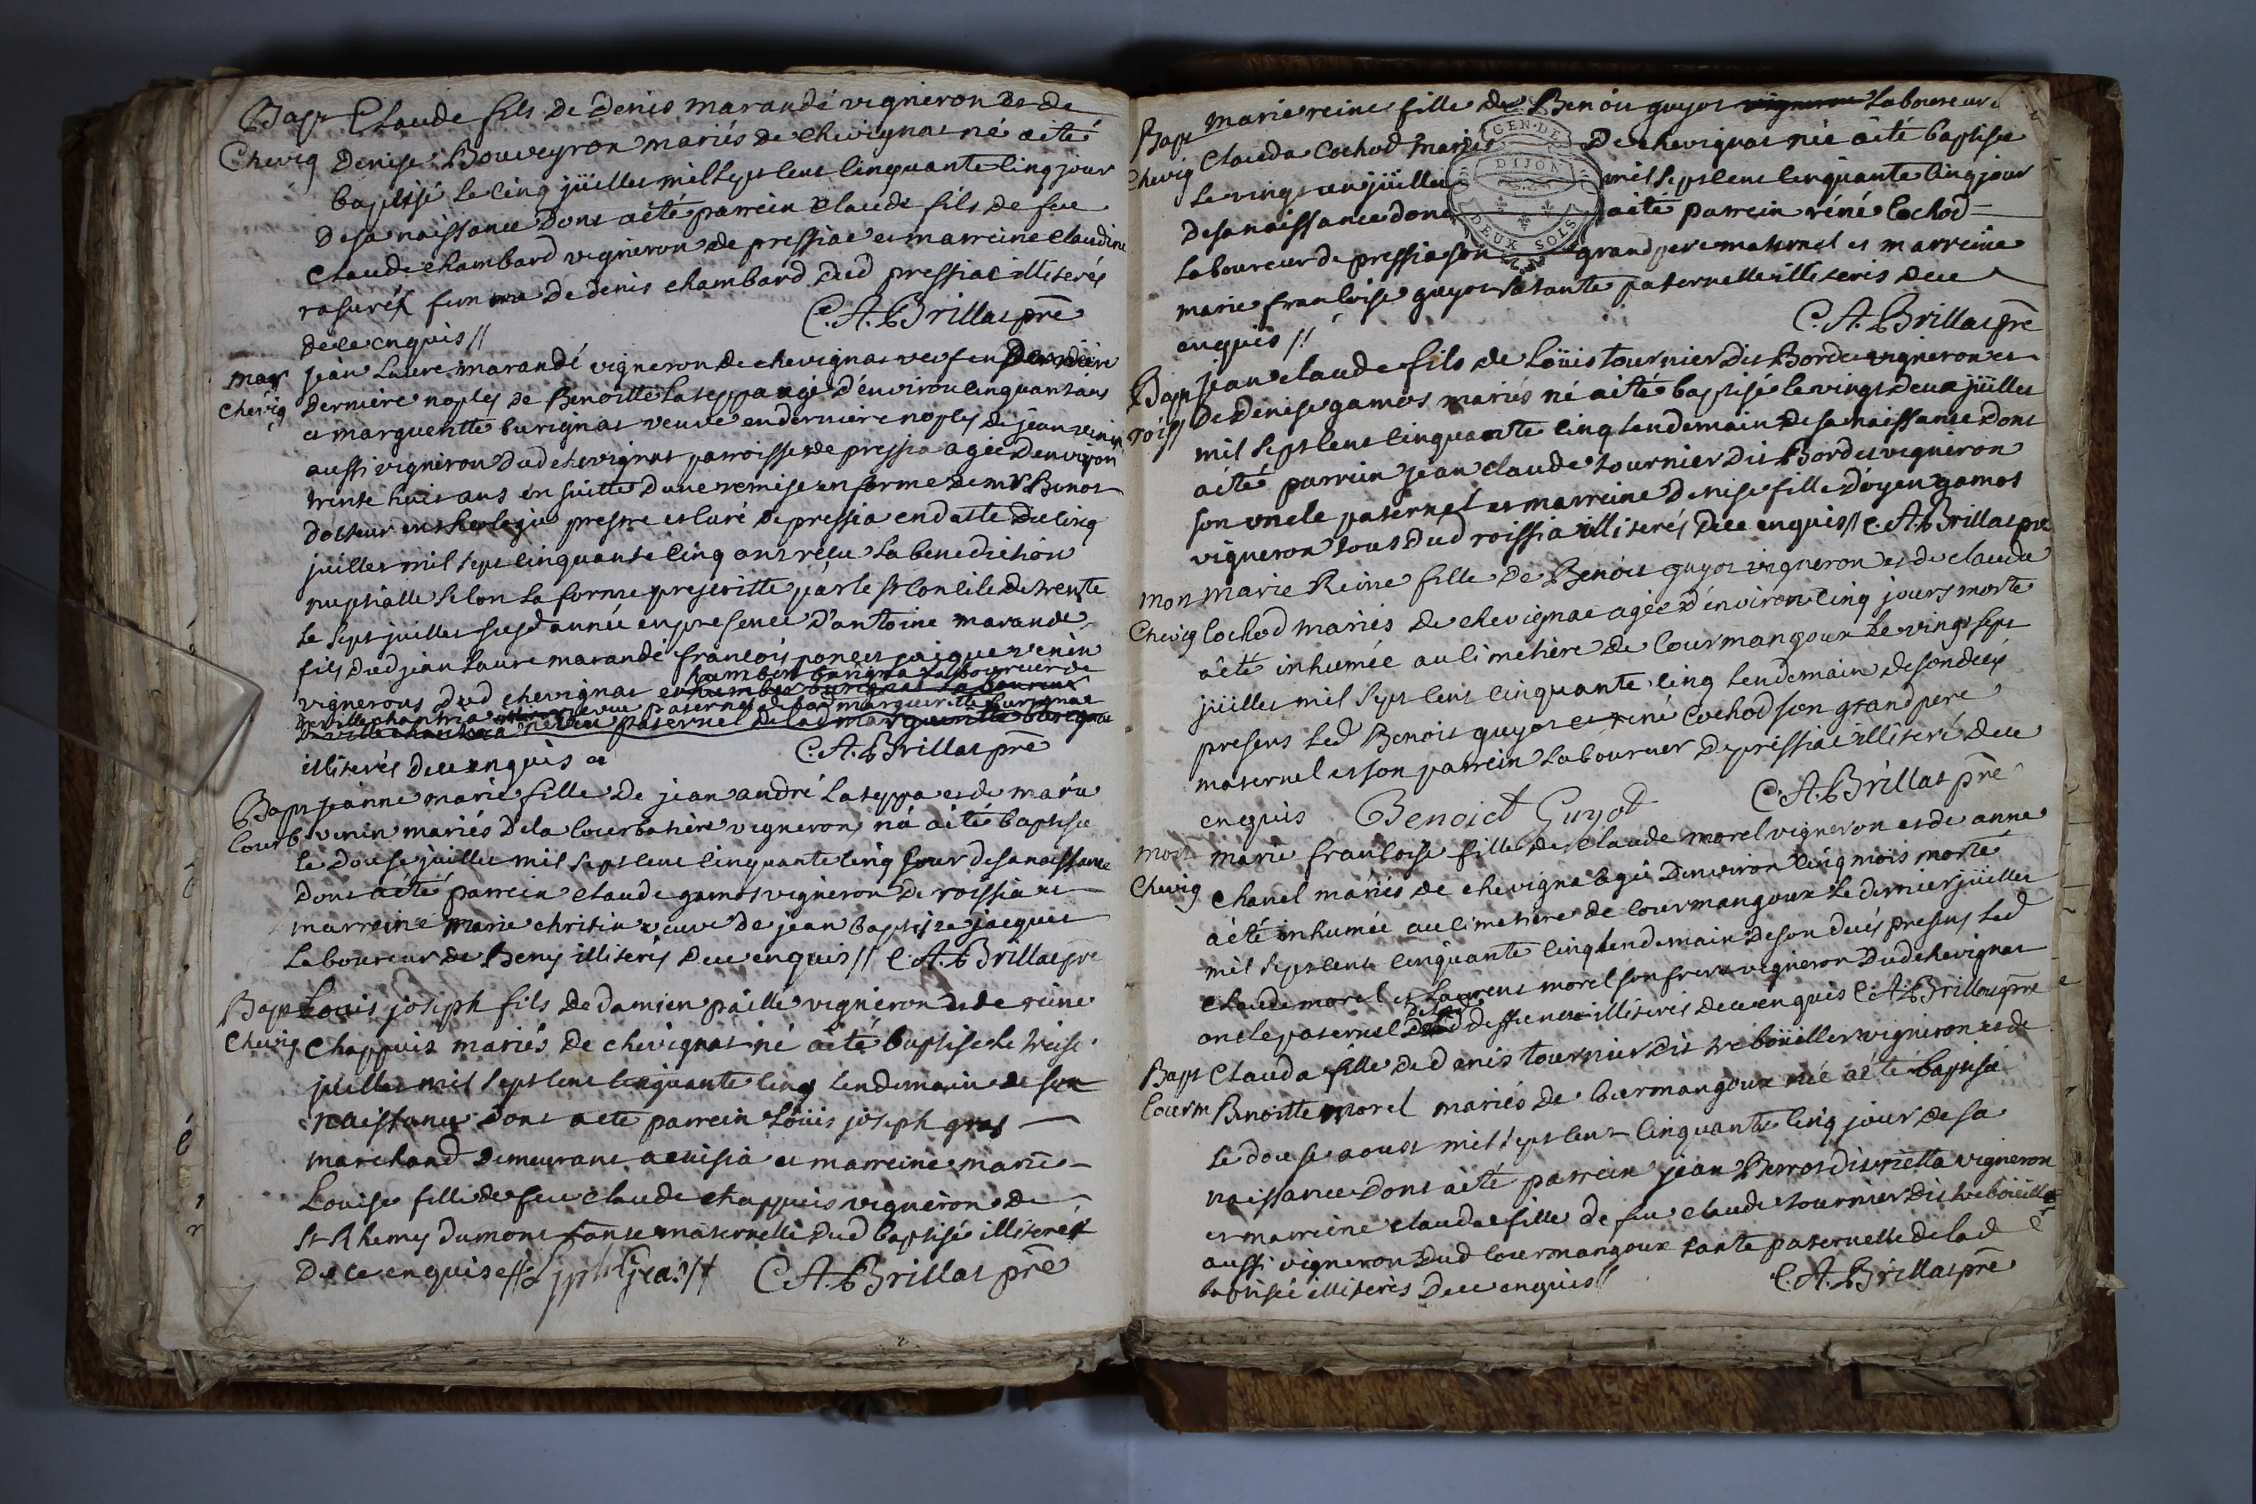 Bapt Claude fils de denis marandé vigneron et de
Chevig denise Bouveyron mariés de chevignat né aété
baptisé le cinq jüillet mil sept cent cinquante cinq jour
de sa naissance dont aété parrein claude fils de feu
claude chambard vigneron de pressiac et marreine claudine
femme de denis chambard dud pressiac illiterés
de ce enquis //
C.A. Brillat pre
mar jean laure marandé vigneron de chevignat veuf en
Chevig derniere nopces de Benoitte lateppa agé d'environ cinquante ans
et margueritte burignat veuve en derniere nopces de jean venin
aussi vigneron dud chevignat parroisse de pressia agée d'environ
trente huit ans en suitte d'une remise en forme de mr Benot
docteur en theologie prestre et curé de pressia en datte du cinq
juillet mil sept cinquante cinq ont reçu la benediction
nuptialle selon la forme prescritte par le st concile de trente
le sept juillet susd année en presence d'antoine marandé
fils dud jean laure marandé francois poncet jacque venin
humbert burigna laboureur de
vignerons dud chevignat et humbert burignat laboureur
de villechantria neveu paternel de lad margueritte burignat
de villechantria neveu paternel de lad margueritte burignat
illiterés de ce enquis
C.A. Brillat pre
Bapt jeanne marie fille de jean andré lateppa et de marie
Courb venin mariés de la courbatiere vigneron né aété baptisée
le douse juillet mil sept cent cinquante cinq jour de sa naissance
dont aété parrein claude gamot vigneron de roissia et
marreine marie christin veuve de jean baptiste jacquet
laboureur de Beny illiterés de ce enquis // C.A. Brillat pre
Bapt Louis joseph fils de damien paille vigneron et de reine
Chevig chappuis mariés de chevignat né aété baptisé le treise
juillet mil sept cent cinquante cinq lendemain de son
naissance dont aeté parrein Löuis joseph gras
marchand demeurant a cuisia et marreine marie
Louise fille de feu claude chappuis vigneron de
st Rhemy dumont tante maternelle dud baptisé illiteré
de ce enquise // Gras //
C.A. Brillat pre
Bapt marie reine fille de Benoit guyot vigneron laboureur
Chevig clauda cochod mariés de chevignat née aété baptisée
le vingt un jüillet mil sept cent cinquante cinq jour
de sa naissance dont aété parrein réné cochod
laboureur de pressia son grand pere maternel et marreine
marie francoise guyot sa tante paternelle illiterés de ce
enquis //
GEN. DE
DIJON
DEUX SOLS
C.A. Brillat pre
Bapt jean claude fils de Löuis tournier dit Borde vigneron et
roiss de denise gamot mariés né aété baptisé le vingt deux jüillet
mil sept cent cinquante cinq lendemain de sa naissance dont
aété parrein jean claude tournier dit Borde vigneron
son oncle paternel et marreine denise fille d'oyen gamot
vigneron tous dud roissia illiterés de ce enquis // C.A. Brillat pre
mort marie Reine fille de Benoit guyot vigneron et de clauda
Chevig Cochod mariés de chevignat agée d'environ cinq jours morte
aété inhumée au cimetière de Courmangoux le vingt sept
jüillet mil sept cent cinquante cinq lendemain de son decés
presens led Benoit guyot et réné Cochod son grand pere
maternel et son parrein laboureur de pressiac illiteré de ce
enquis Benoict Guyod
C.A. Brillat pre
mort marie francoise fille de claude morel vigneron et de anne
Chevig chanel mariés de chevigna agée d'environ cinq mois morte
aété inhumée au cimetière de courmangoux le dernier jüillet
mil sept cent cinquante cinq lendemain de son decés presens led
claude morel et laurent morel son frere vigneron dud chevignat
de lad
oncle paternel deffunte illiterés de ce enquis C.A. Brillat pre
Bapt Clauda fille de denis tournier dit trebouiller vigneron et de
Courm Benoitte morel mariés de Courmangoux née aété baptisée
le douse aoust mil sept cent cinquante cinq jour de sa
naissance dont aété parrein jean Perrot dit rietta vigneron
et marreine clauda fille de feu claude tournier dit trebouiller
aussi vigneron dud courmangoux tante paternelle de lad
baptisée illiterés de ce enquis //
C.A. Brillat pre